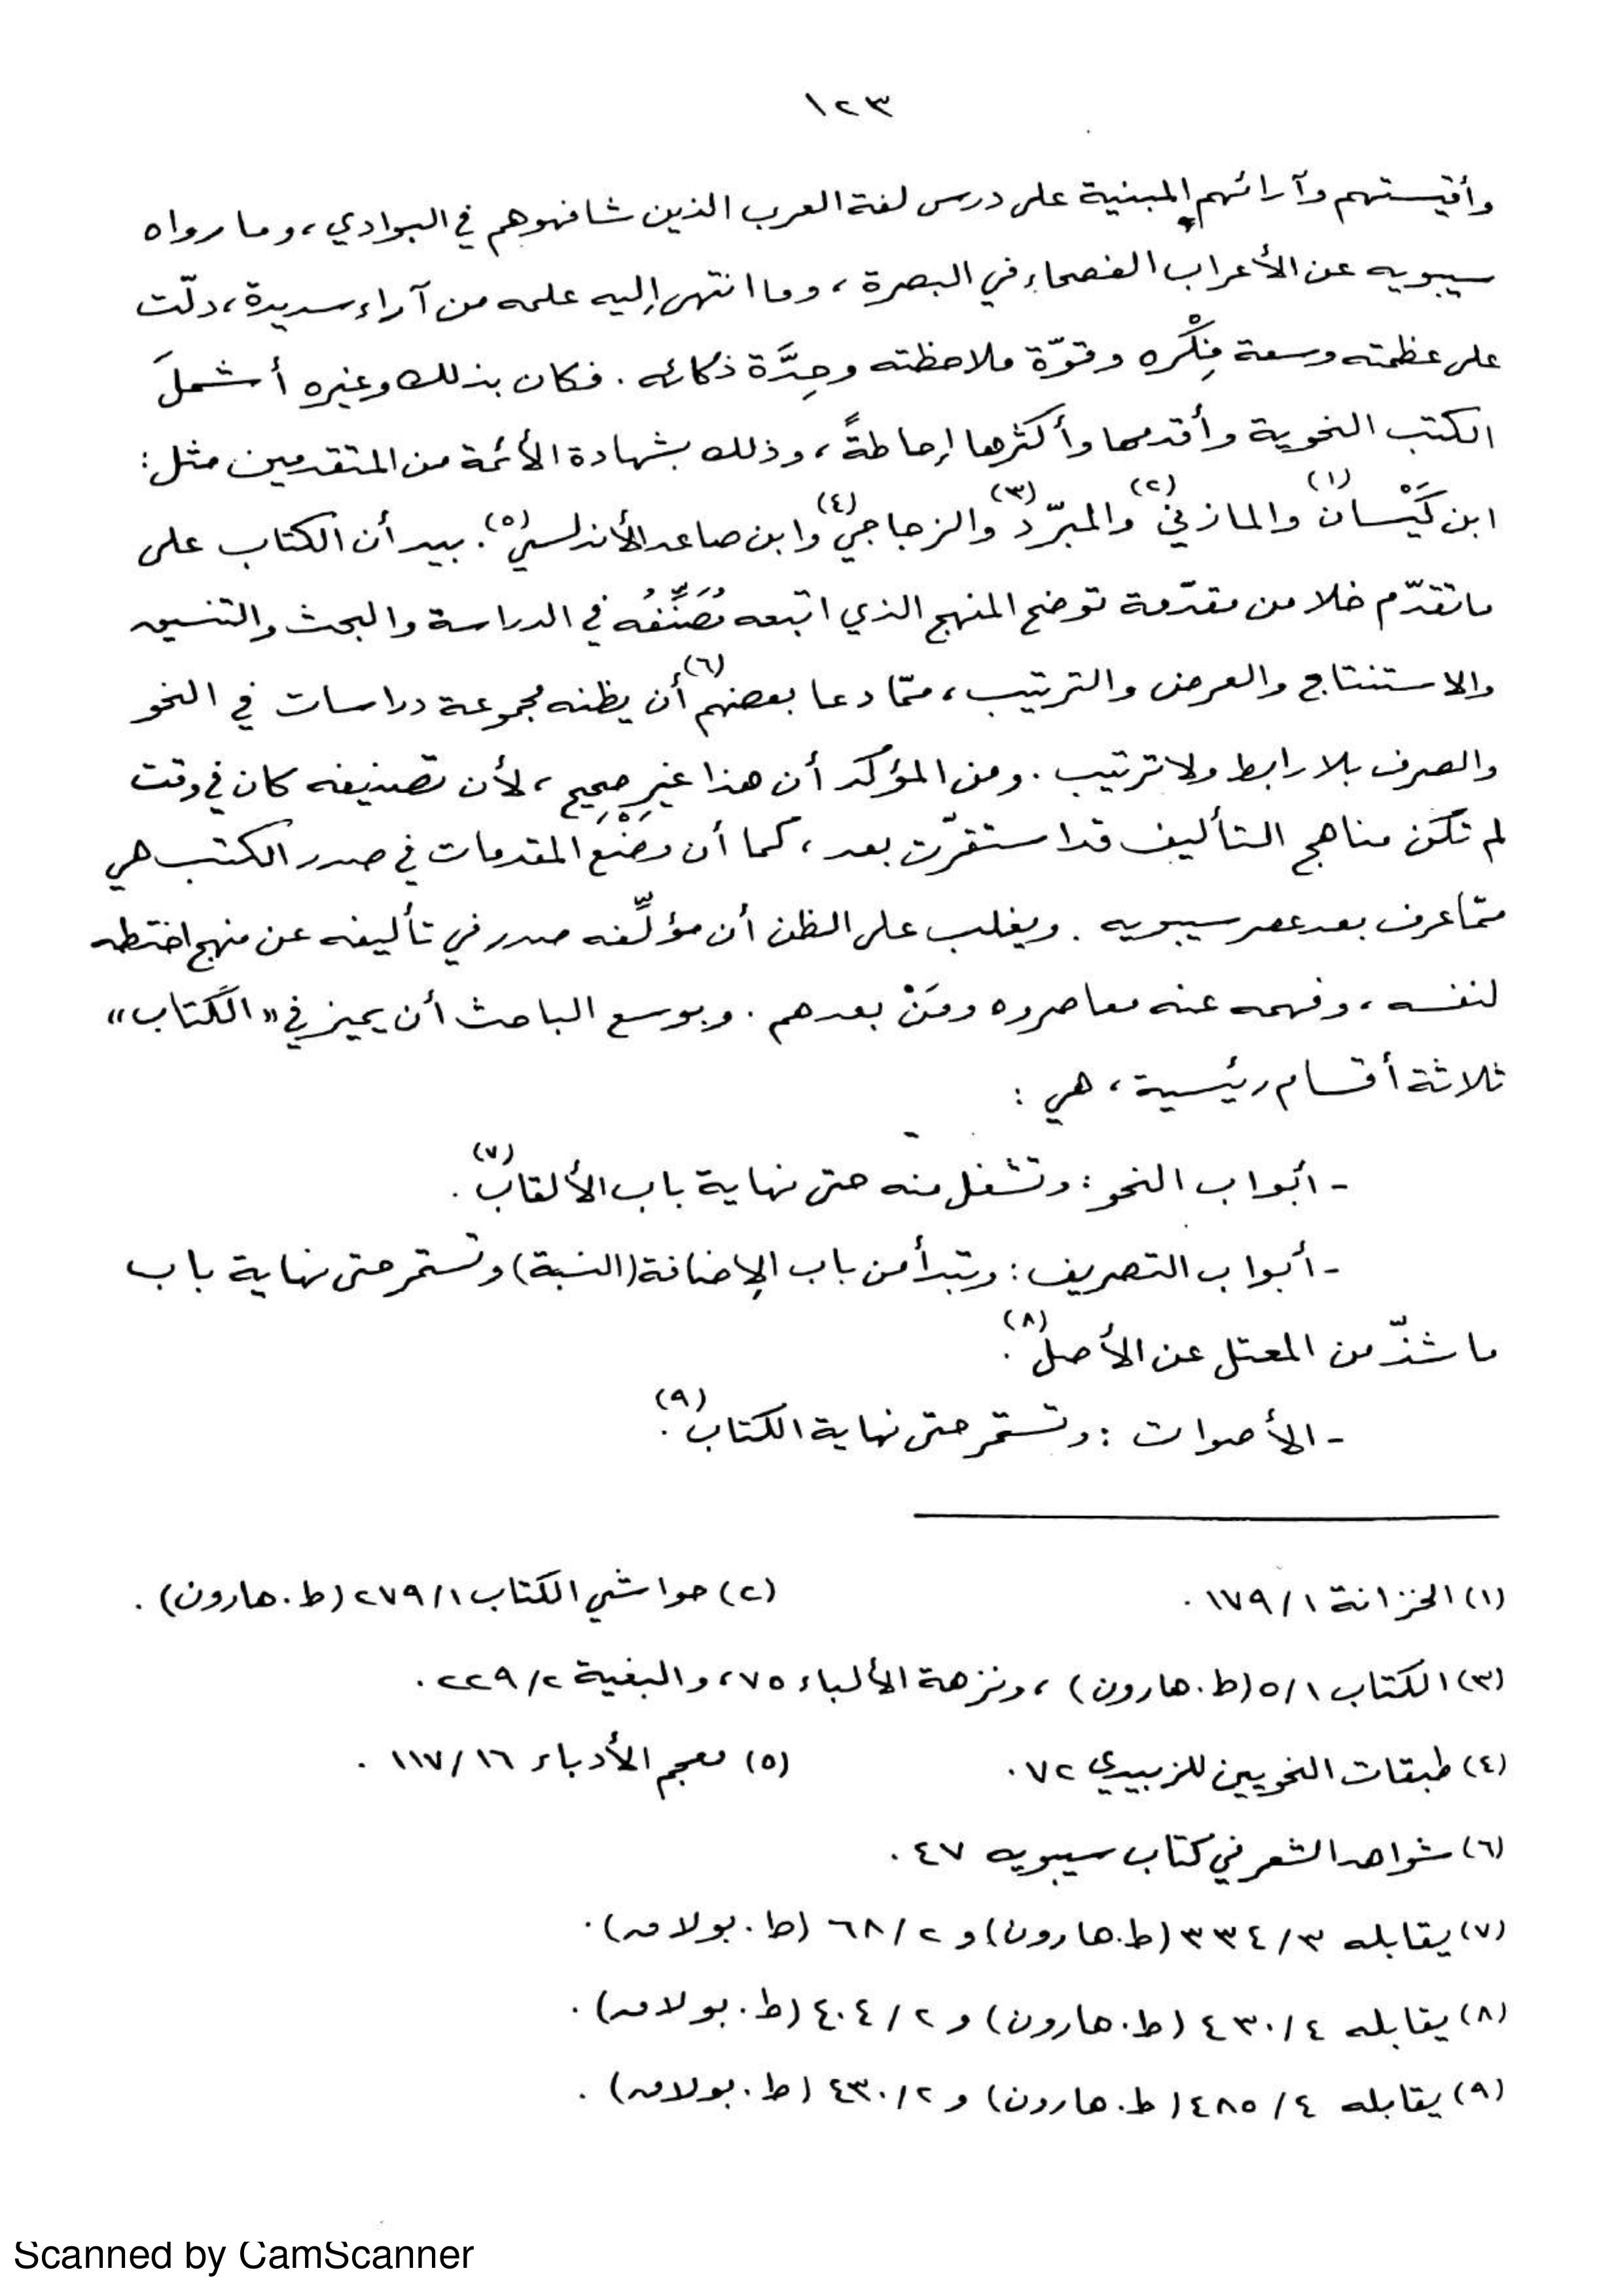 ١٢٣
وأقيستهم وآرائهم المبنية على درس لغة العرب الذين شافهوهم في البوادي، وما رواه
سيبويه عن الأعراب الفصحاء في البصرة، وما انتهى إليه علمه من آراء سديدة، دلّت
على عظمته وسعة فِكْره وقوّة ملاحظته وحِدَّة ذكائه. فكان بذلك وغيره أشملَ
الكتب النحوية وأقدمها وأكثرها إحاطةً، وذلك بشهادة الأئمة من المتقدمين مثل:
ابن كَيْسان(١) والمازني(٢) والمبرّد(٣) والزجاجي(٤) وابن صاعد الأندلسي(٥). بيد أن الكتاب على
ما تقدّم خلا من مقدّمة توضح المنهج الذي اتبعه مُصَنِّفُه في الدراسة والبحث والتنسيق
والاستنتاج والعرض والترتيب، ممّا دعا بعضهم(٦) أن يظنه مجموعة دراسات في النحو
والصرف بلا رابط ولا ترتيب. ومن المؤكد أن هذا غير صحيح، لأن تصنيفه كان في وقت
لم تكن مناهج التأليف قد استقرّت بعد، كما أن وَضْعِ المقدمات في صدر الكتب هي
ممّا عرف بعد عصر سيبويه. ويغلب على الظن أن مؤلِّفه صدر في تأليفه عن منهج اختطه
لنفسه، وفهمه عنه معاصروه ومَنْ بعدهم. وبوسع الباحث أن يميز في «الكتاب»
ثلاثة أقسام رئيسية، هي:
- أبواب النحو: وتشغل منه حتى نهاية باب الألقاب(٧).
- أبواب التصريف: وتبدأ من باب الإضافة (النسبة) وتستمر حتى نهاية باب
ما شذّ من المعتل عن الأصل(٨).
- الأصوات: وتستمر حتى نهاية الكتاب(٩).
(١) الخزانة ١/١٧٩. (٢) حواشي الكتاب ١/٢٧٩ (ط. هارون).
(٣) الكتاب ١/٥ (ط. هارون)، ونزهة الألباء ٧٥، والبغية ٢/٢٢٩.
(٤) طبقات النحويين للزبيدي ٧٢. (٥) معجم الأدباء ١٦/١١٧.
(٦) شواهد الشعر في كتاب سيبويه ٤٧.
(٧) يقابله ٣/٣٣٤ (ط. هارون) و ٢/٦٨ (ط. بولاق).
(٨) يقابله ٤/٤٣٠ (ط. هارون) و ٢/٤٠٤ (ط. بولاق).
(٩) يقابله ٤/٤٨٥ (ط. هارون) و ٢/٤٣٠ (ط. بولاق).
Scanned by CamScanner